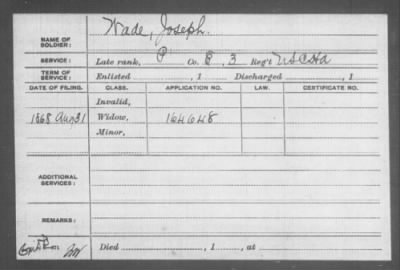 NAME OF SOLDIER: Wade, Joseph.
SERVICE: Late rank, P Co. B, 3 Reg't U S C H A
TERM OF SERVICE: Enlisted , 1 Discharged , 1
DATE OF FILING. CLASS. APPLICATION NO. LAW. CERTIFICATE NO.
Invalid,
1868 Aug 31 Widow, 164648
Minor,
ADDITIONAL SERVICES:
REMARKS:
Died , 1 , at